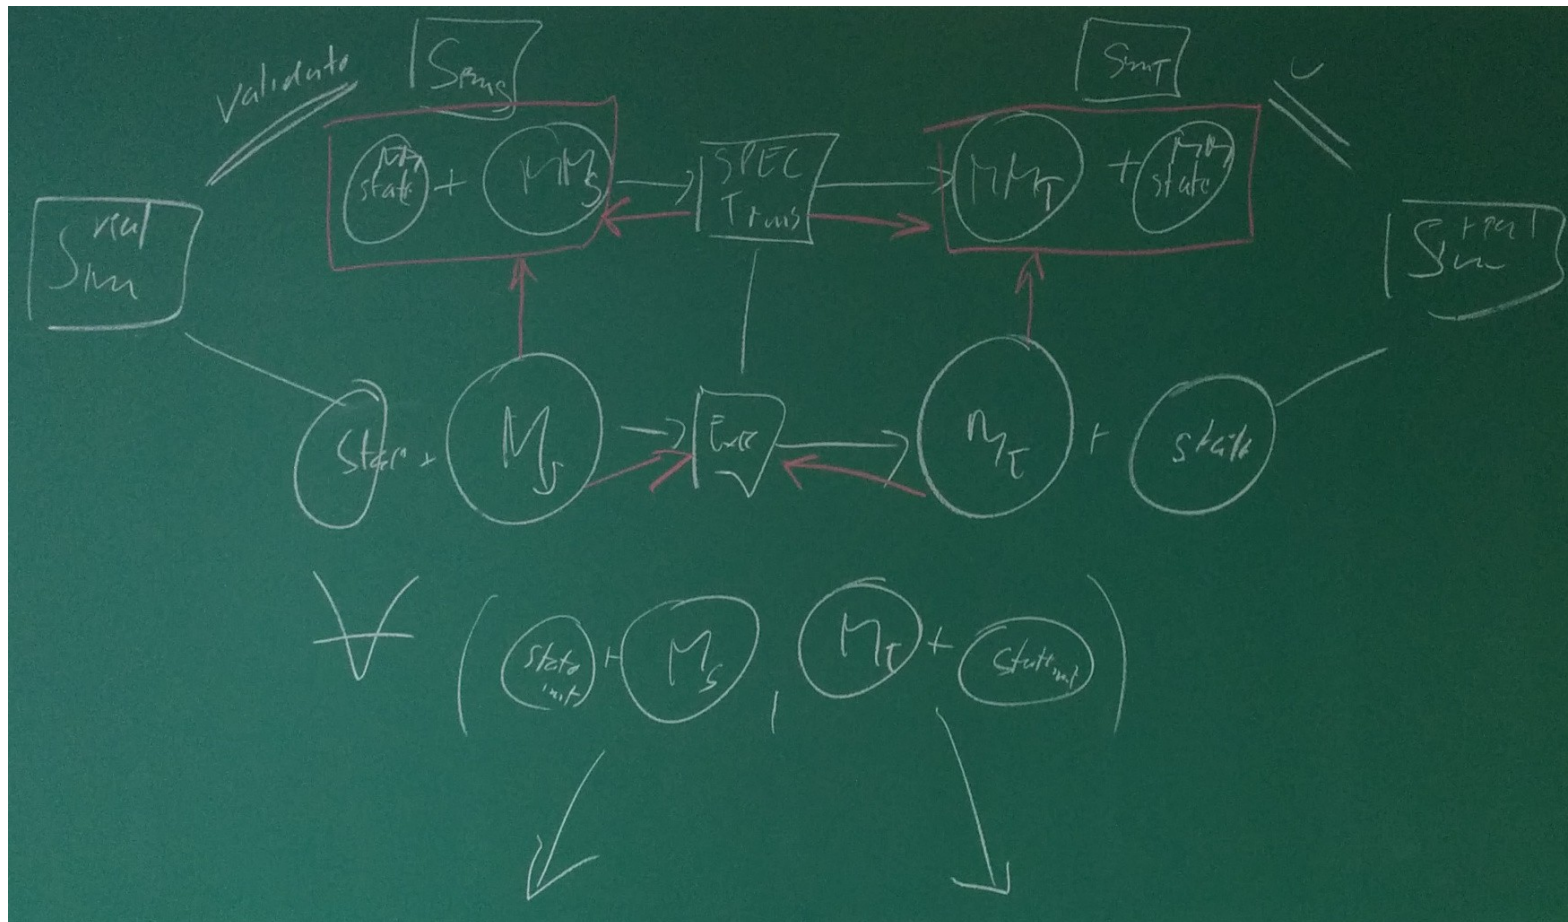 validate
Sim S
Sim T
MM
state
+
MM S
SPEC
Trans
MM T
+
MM
state
Sim real
Sim real
+
M S
Exec
M T
+
state
∀
(
state
init
+
M S
,
M T
+
state init
)